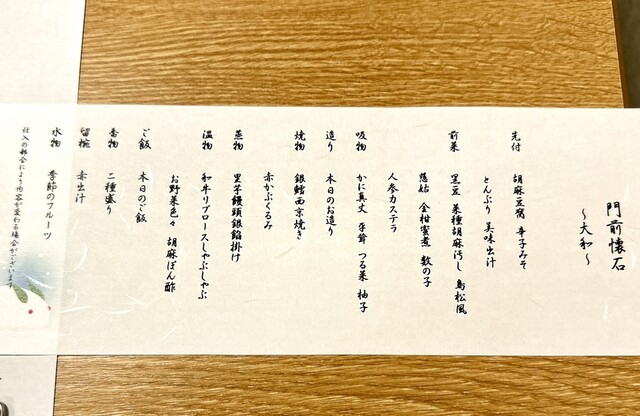 門前懐石
～大和～
先付 胡麻豆腐 辛子みそ
とんぶり 美味出汁
前菜 黒豆 菜種胡麻汚し 鳥松風
慈姑 金柑蜜煮 数の子
人参カステラ
吸物 かに真丈 つる菜 柚子
造り 本日のお造り
焼物 銀鱈西京焼き
赤かぶくるみ
蒸物 里芋饅頭銀餡掛け
温物 和牛リブロースしゃぶしゃぶ
お野菜色々 胡麻ぽん酢
ご飯 本日のご飯
香物 二種盛り
留椀 赤出汁
水物 季節のフルーツ
仕入の都合により内容が変わる場合がございます